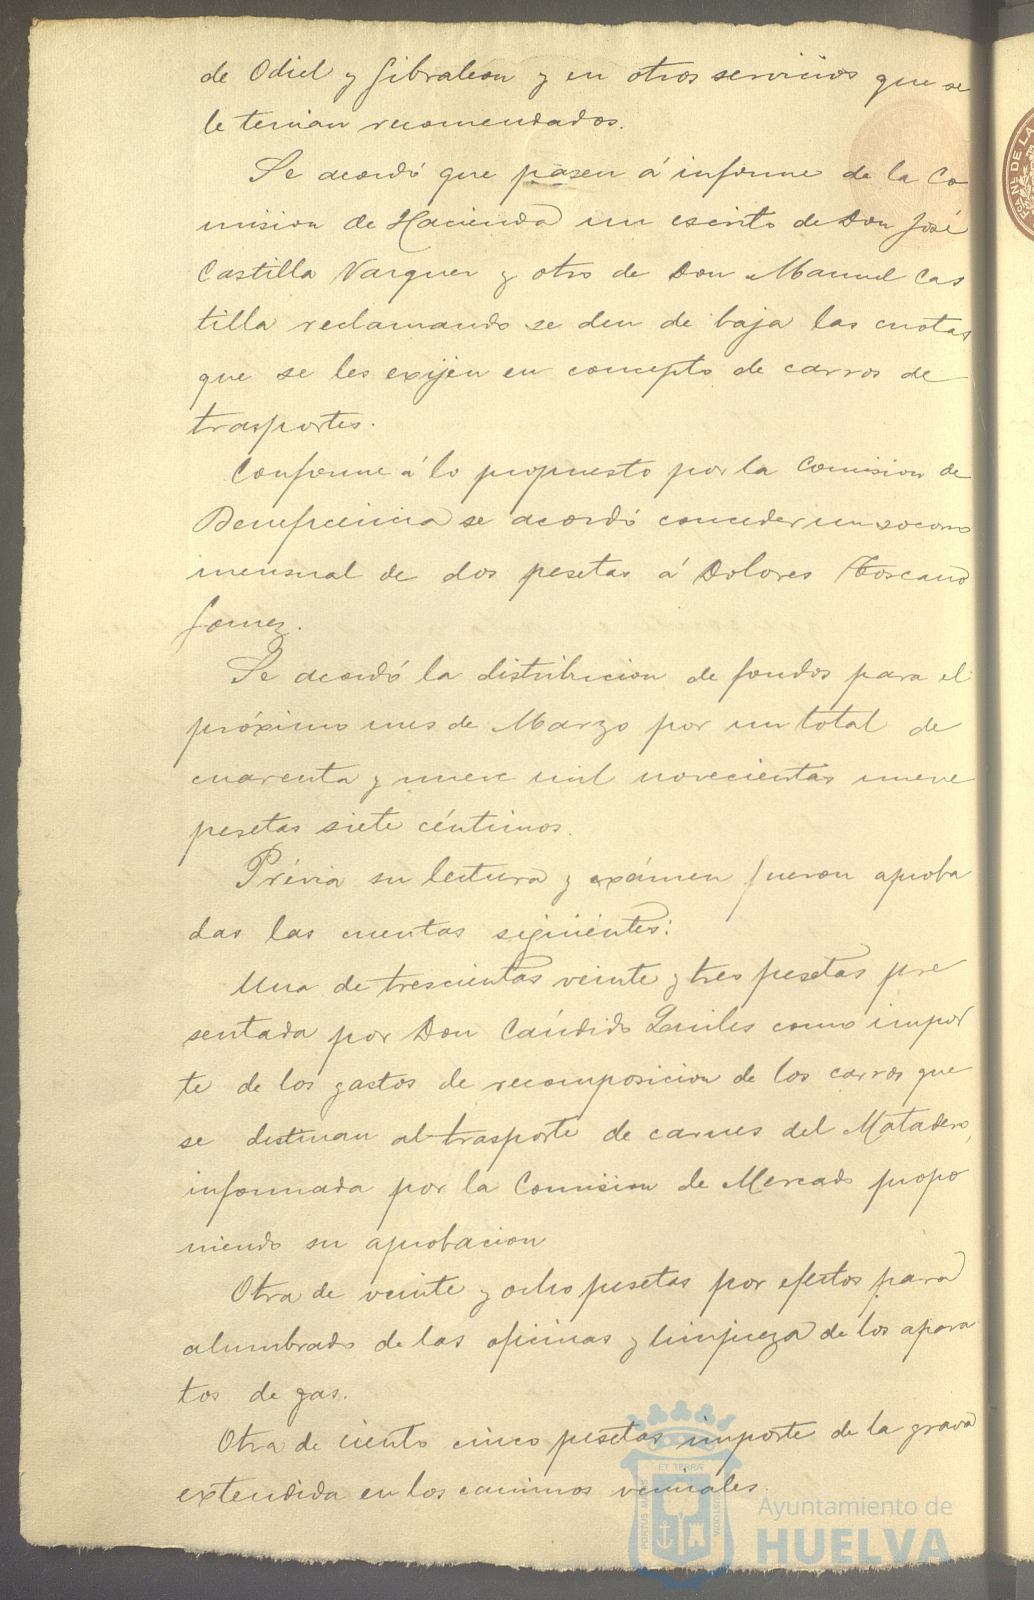 de Odiel y Gibraleon y en otros servicios que se
le tenian recomendados.
Se acordó que pasen á informe de la Co
mision de Hacienda un escrito de Don José
Castilla Varquez y otro de Don Manuel Cas
tilla reclamando se den de baja las cuotas
que se les exijen en concepto de carros de
trasportes.
Conforme á lo propuesto por la Comision de
Beneficencia se acordó conceder un socorro
mensual de dos pesetas á Dolores Toscano
Gomez.
Se acordó la distribucion de fondos para el
próximo mes de Marzo por un total de
cuarenta y nueve mil novecientas nueve
pesetas siete céntimos.
Prévia su lectura y exámen fueron aproba
das las cuentas siguientes:
Una de trescientas veinte y tres pesetas pre
sentada por Don Cándido como impor
te de los gastos de recomposicion de los carros que
se destinan al trasporte de carnes del Matadero,
informada por la Comision de Mercado propo
niendo su aprobacion
Otra de veinte y ocho pesetas por efectos para
alumbrado de las oficinas y limpieza de los apara
tos de gas.
Otra de ciento cinco pesetas importe de la grava
extendida en los caminos vecinales.
ET TERRÆ
PORTUS MARIS
CUSTODIA
Ayuntamiento de
HUELVA